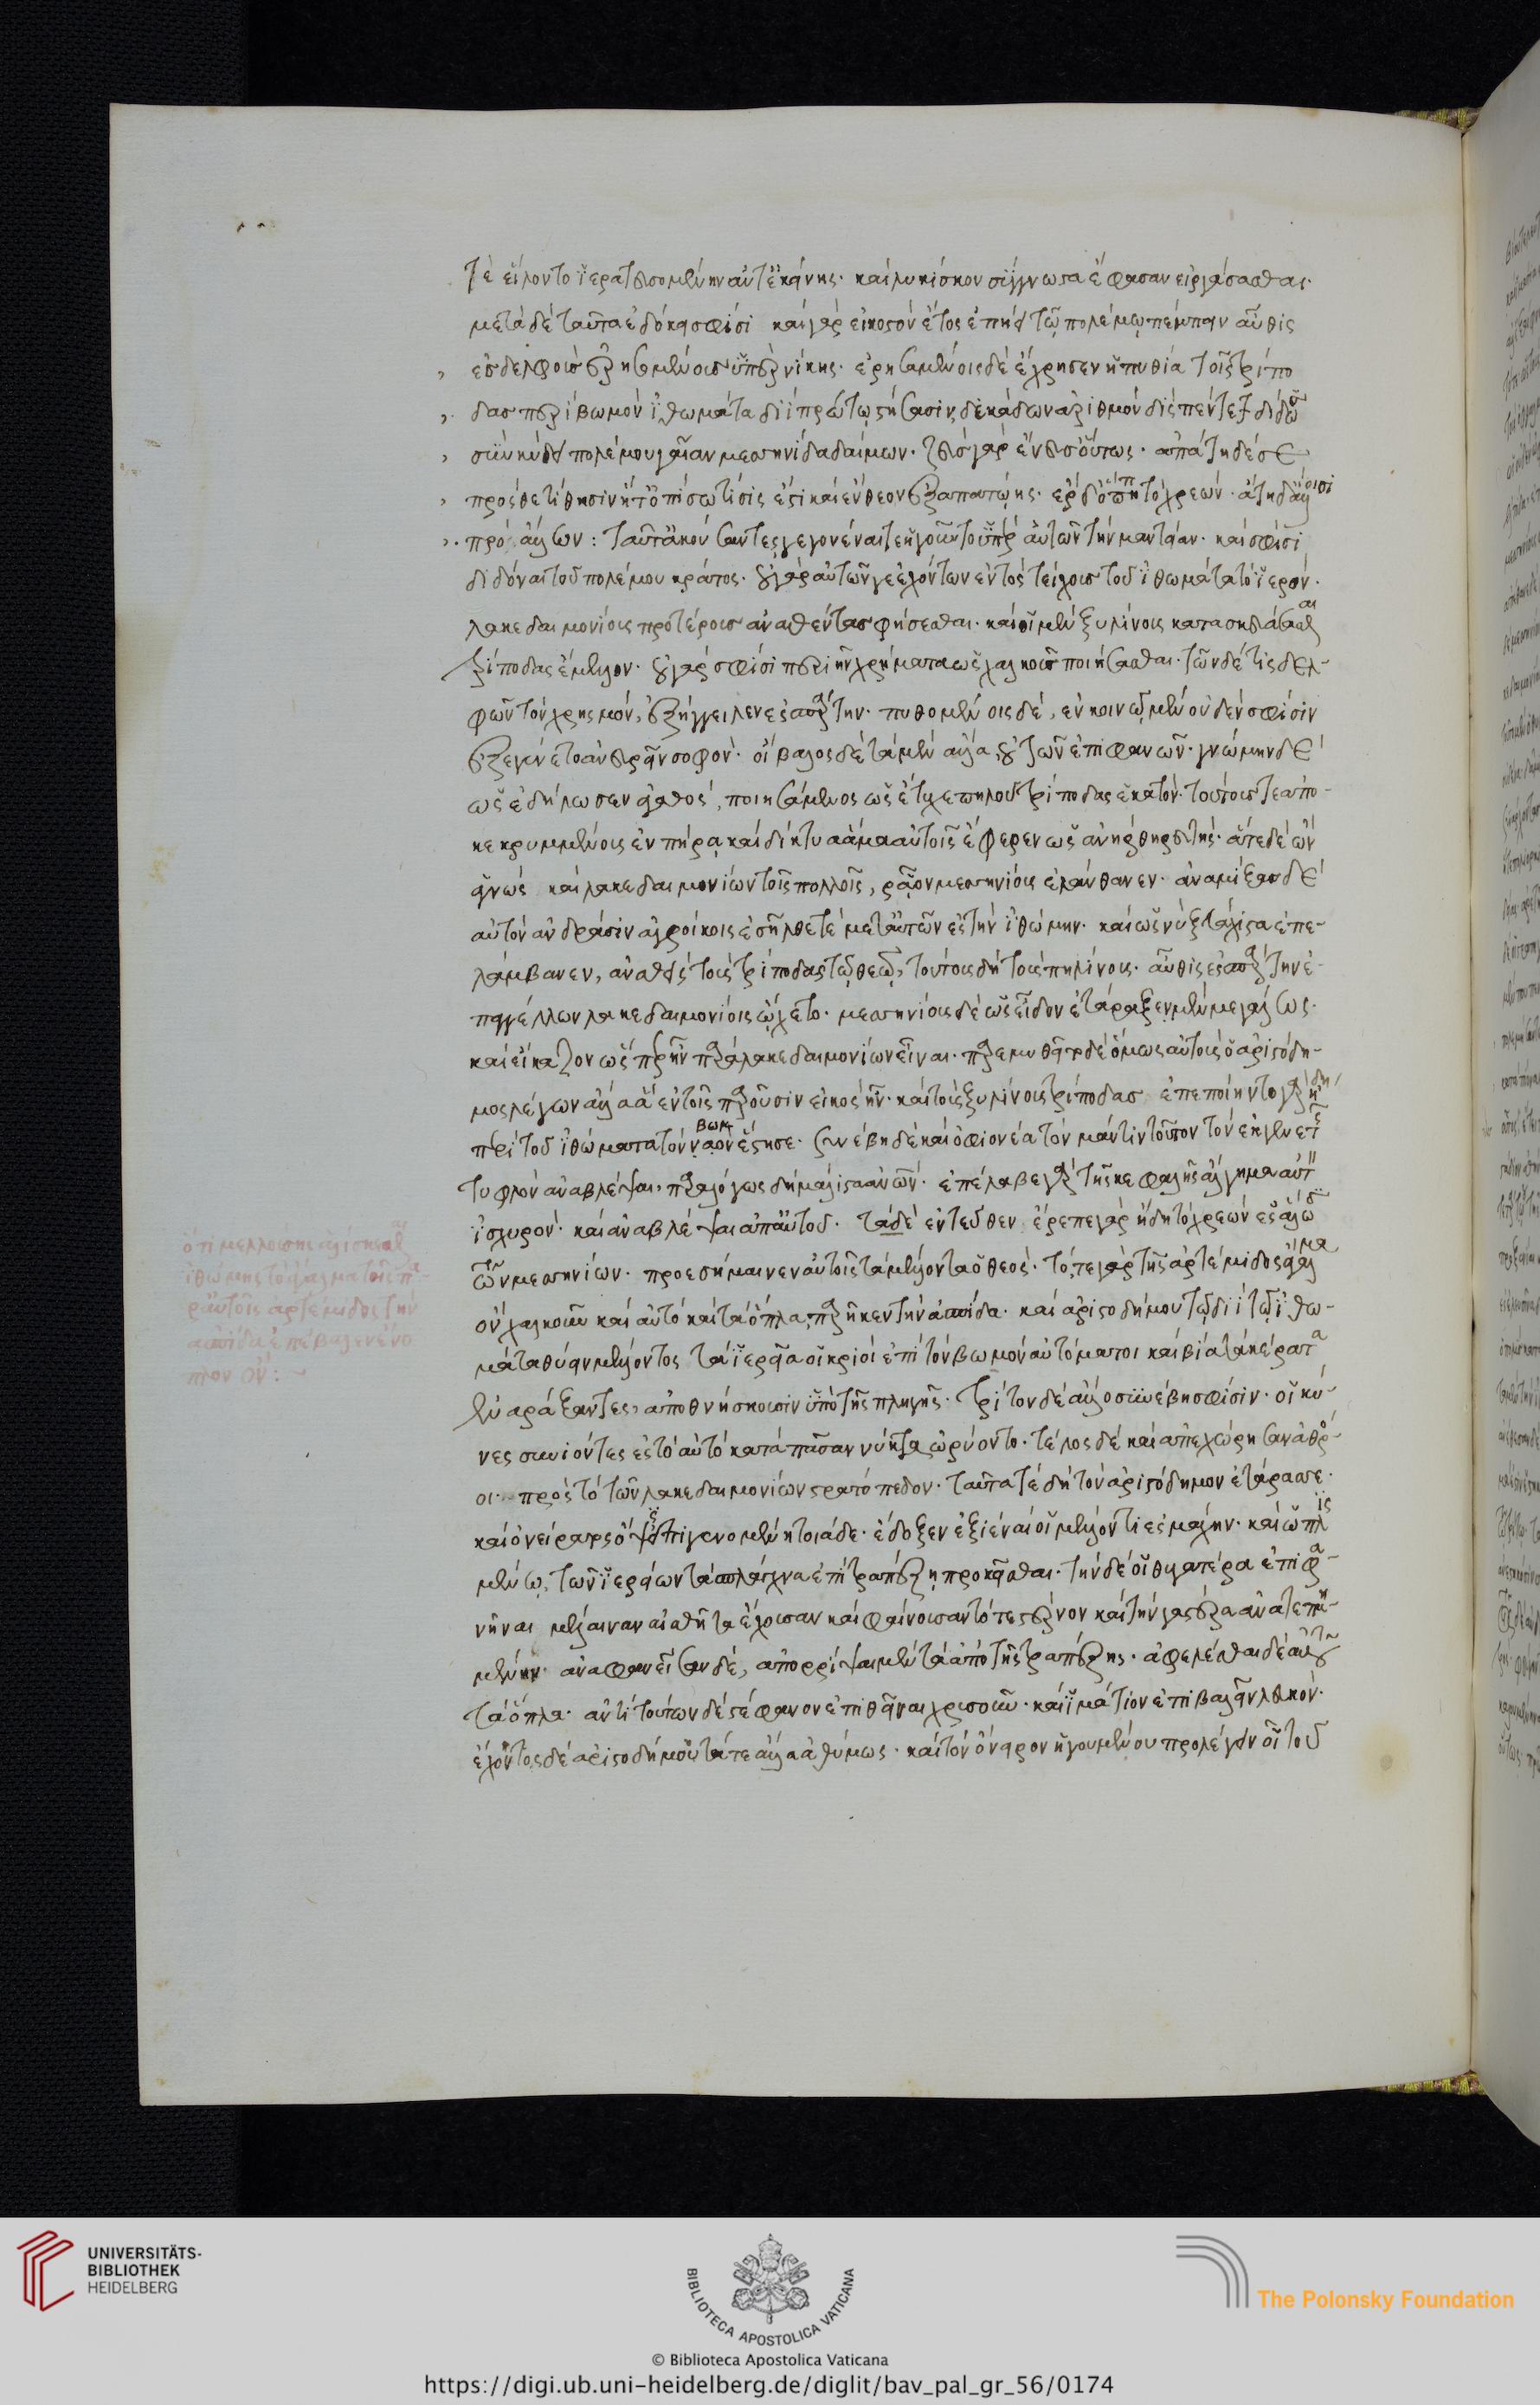 τε εἵλοντο ἱερατευσομένην ἀντ' ἐκείνης· καὶ λυκίσκον συγγνωστὰ ἔφασαν εἰργάσασθαι·
μετὰ δὲ ταῦτα ἐδόκει σφίσι καὶ γὰρ εἰκοστὸν ἔτος ἐπῄει τῷ πολέμῳ πέμπειν αὖθις
ἐς δελφοὺς ἐρησομένους ὑπὲρ νίκης· ἐρησαμένοις δὲ ἔχρησεν ἡ πυθία τοῖς τρίπο
δας περὶ βωμὸν ἰθωμάτα διὶ πρώτῳ στήσασιν δεκάδων ἀριθμὸν δὶς πέντε
σὺν κύδει πολέμου γαῖαν μεσσηνίδα δαίμων· ζεὺς γὰρ ἔνευσ' οὕτως· ἀπάτη δέ σε
πρόσθε τίθησιν ἥ τ' ὀπίσω τίσις ἐστὶ καὶ ἔνθεον ἐξαπατῴης· ἔρδ' ὅππη τὸ χρεών· ἄτη δ' ἄλλοισι
πρὸ ἄλλων: ταῦτα ἀκούσαντες γεγονέναι τε ἡγοῦντο ὑπὲρ αὑτῶν τὴν μαντείαν· καὶ σφίσι
διδόναι τοῦ πολέμου κράτος· οὐ γὰρ αὐτῶν γε ἐχόντων ἐντὸς τείχους τοῦ ἰθωμάτα τὸ ἱερόν·
λακεδαιμονίους προτέρους ἀναθέντας φήσεσθαι· καὶ οἱ μὲν ξυλίνους κατασκευάσασθαι
τρίποδας ἔμελλον· οὐ γάρ σφισι περιῆν χρήματα ὡς χαλκοῦς ποιήσασθαι· τῶν δέ τις δελ-
φῶν τὸν χρησμὸν, ἐξήγγειλεν ἐς σπάρτην· πυθομένοις δὲ, ἐν κοινῷ μὲν οὐδέν σφισιν
ἐξεγένετο ἀνευρεῖν σοφόν· οἴβαλος δὲ τὰ μὲν ἄλλα, οὐ τῶν ἐπιφανῶν· γνώμην δὲ
ὡς ἐδήλωσεν ἀγαθὸς, ποιησάμενος ὡς ἔτυχε πηλοῦ τρίποδας ἑκατόν· τούτους τε ἀπο-
κεκρυμμένους ἐν πήρᾳ καὶ δίκτυα ἅμα αὐτοῖς ἔφερεν ὡς ἀνὴρ θηρευτής· ἅτε δὲ ὢν
ἀγνὼς καὶ λακεδαιμονίων τοῖς πολλοῖς, ῥᾷον μεσσηνίους ἐλάνθανεν· ἀναμίξας δὲ
αὑτὸν ἀνδράσιν ἀγροίκοις ἐσῆλθέ τε μετ' αὐτῶν ἐς τὴν ἰθώμην· καὶ ὡς νὺξ τάχιστα ἐπε-
λάμβανεν, ἀναθεὶς τοὺς τρίποδας τῷ θεῷ, τούτους δὴ τοὺς πηλίνους· αὖθις ἐς σπάρτην ἐ-
παγγέλλων λακεδαιμονίοις ᾤχετο· μεσσηνίους δὲ ὡς εἶδον ἐτάραξεν, μὲν μεγάλως·
καὶ εἴκαζον ὥσπερ ἦν παρὰ λακεδαιμονίων εἶναι· παρεμυθεῖτο δὲ ὅμως αὐτοὺς ὁ ἀριστόδη-
μος λέγων ἄλλα ἃ ἐν τοῖς παροῦσιν εἰκὸς ἦν· καὶ τοὺς ξυλίνους τρίποδας ἐπεποίηντο γὰρ ἤδη
περὶ τοῦ ἰθωμάτα τὸν ναὸν βωμ ἔστησε· συνέβη δὲ καὶ ὀφιονέα τὸν μάντιν τοῦτον τὸν ἐκ γενετῆς
τυφλὸν ἀναβλέψαι, παραλόγως δὴ μάλιστα ἀνθρώπων· ἐπέλαβε γὰρ τῆς κεφαλῆς ἄλγημα αὐτὸν
ἰσχυρόν· καὶ ἀναβλέψαι ἀπ' αὐτοῦ· τὰ δὲ ἐντεῦθεν ἔρεπε γὰρ ἤδη τὸ χρεὼν ἐς ἅλωσιν
τῶν μεσσηνίων· προεσήμαινεν αὐτοῖς τὰ μέλλοντα ὁ θεός· τό, τε γὰρ τῆς ἀρτέμιδος ἄγαλμα
ὂν χαλκοῦν καὶ αὐτὸ καὶ τὰ ὅπλα, παρῆκεν τὴν ἀσπίδα· καὶ ἀριστοδήμου τῷ διὶ τῷ ἰθω-
μάτα θύειν μέλλοντος τὰ ἱερεῖα οἱ κριοὶ ἐπὶ τὸν βωμὸν αὐτόματοι καὶ βίᾳ τὰ κέρατα
ἐναράξαντες, ἀποθνήσκουσιν ὑπὸ τῆς πληγῆς· τρίτον δὲ ἄλλο συνέβη σφίσιν· οἱ κύ-
νες συνιόντες ἐς τὸ αὐτὸ κατὰ πᾶσαν νύκτα ὠρύοντο· τέλος δὲ καὶ ἀπεχώρησαν ἀθρό-
οι πρὸς τὸ τῶν λακεδαιμονίων στρατόπεδον· ταῦτά τε δὴ τὸν ἀριστόδημον ἐτάρασσε·
καὶ ὀνείρατος ὄψις ἐπιγενομένη τοιάδε· ἔδοξεν ἐξιέναι οἱ μέλλοντι ἐς μάχην· καὶ ὡπλισ
μένῳ, τῶν ἱερείων τὰ σπλάγχνα ἐπὶ τραπέζῃ προκεῖσθαι· τὴν δέ οἱ θυγατέρα ἐπιφα-
νῆναι μέλαιναν αἰσθῆτα ἔχουσαν καὶ φαίνουσαν τό τε στέρνον καὶ τὴν γαστέρα ἀνατετμη-
μένην· ἀναφανεῖσαν δὲ, ἀπορρῖψαι μὲν τὰ ἀπὸ τῆς τραπέζης· ἀφελέσθαι δὲ αὐτοῦ
τὰ ὅπλα· ἀντὶ τούτων δὲ στέφανον ἐπιθεῖναι χρυσοῦν· καὶ ἱμάτιον ἐπιβαλεῖν λευκόν·
ἔχοντος δὲ ἀριστοδήμου τά τε ἄλλα ἀθύμως· καὶ τὸν ὄνειρον ἡγουμένου προλέγειν οἱ τοῦ
ὅτι μελλούσης ἁλίσκεσθαι
ἰθώμης τὸ ἄγαλμα τοῖς πα-
ρ' αὐτοῖς ἀρτέμιδος τὴν
ἀσπίδα ἐπέβαλεν ἔνο
πλον ὄν:~
UNIVERSITÄTS-
BIBLIOTHEK
HEIDELBERG
BIBLIOTECA APOSTOLICA VATICANA
The Polonsky Foundation
© Biblioteca Apostolica Vaticana
https://digi.ub.uni-heidelberg.de/diglit/bav_pal_gr_56/0174